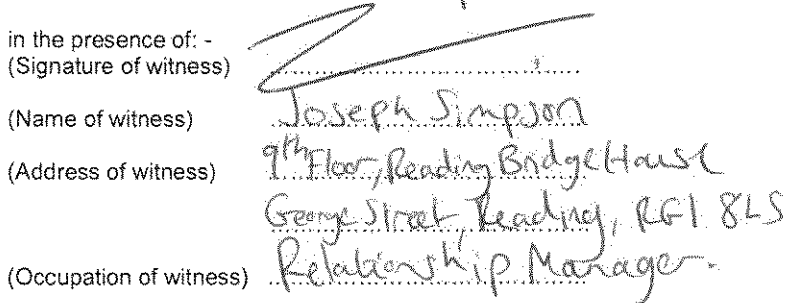 in the presence of: -
(Signature of witness)
(Name of witness) Joseph Simpson
(Address of witness) 9th Floor, Reading Bridge House
George Street, Reading, RG1 8LS
(Occupation of witness) Relationship Manager.